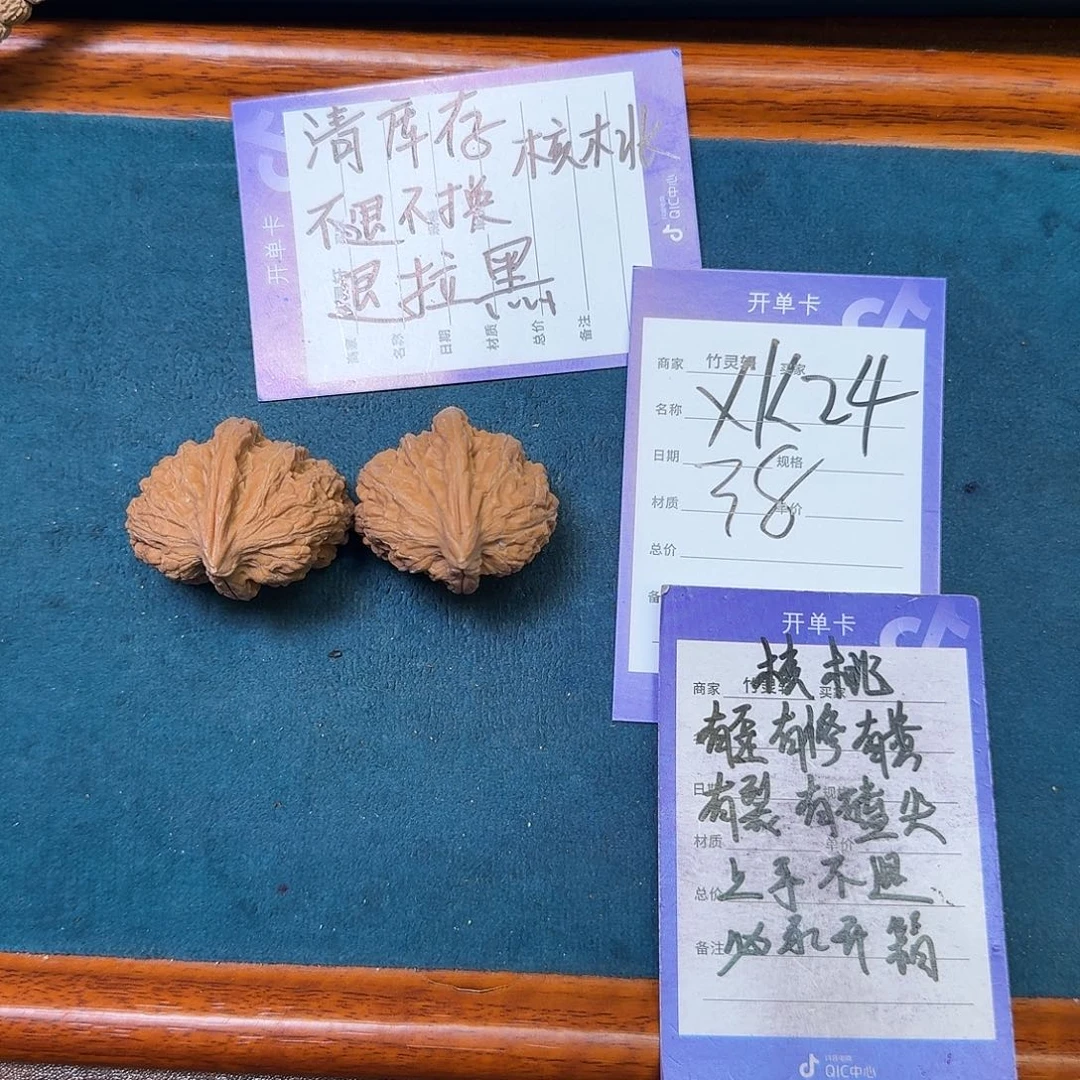 清库存
核桃
不退不换
退拉黑
开单卡
商家
名称
日期
材质
总价
备注
QIC中心
开单卡
商家 竹灵轩 买家
名称 XK24
日期 规格
38
材质 单价
总价
备
开单卡
核桃
商家 竹灵轩 买家
有歪有修有黄
日期 规格
有裂有磕尖
材质 单价
总价 上手不退
备注 必录开箱
抖音电商
QIC中心